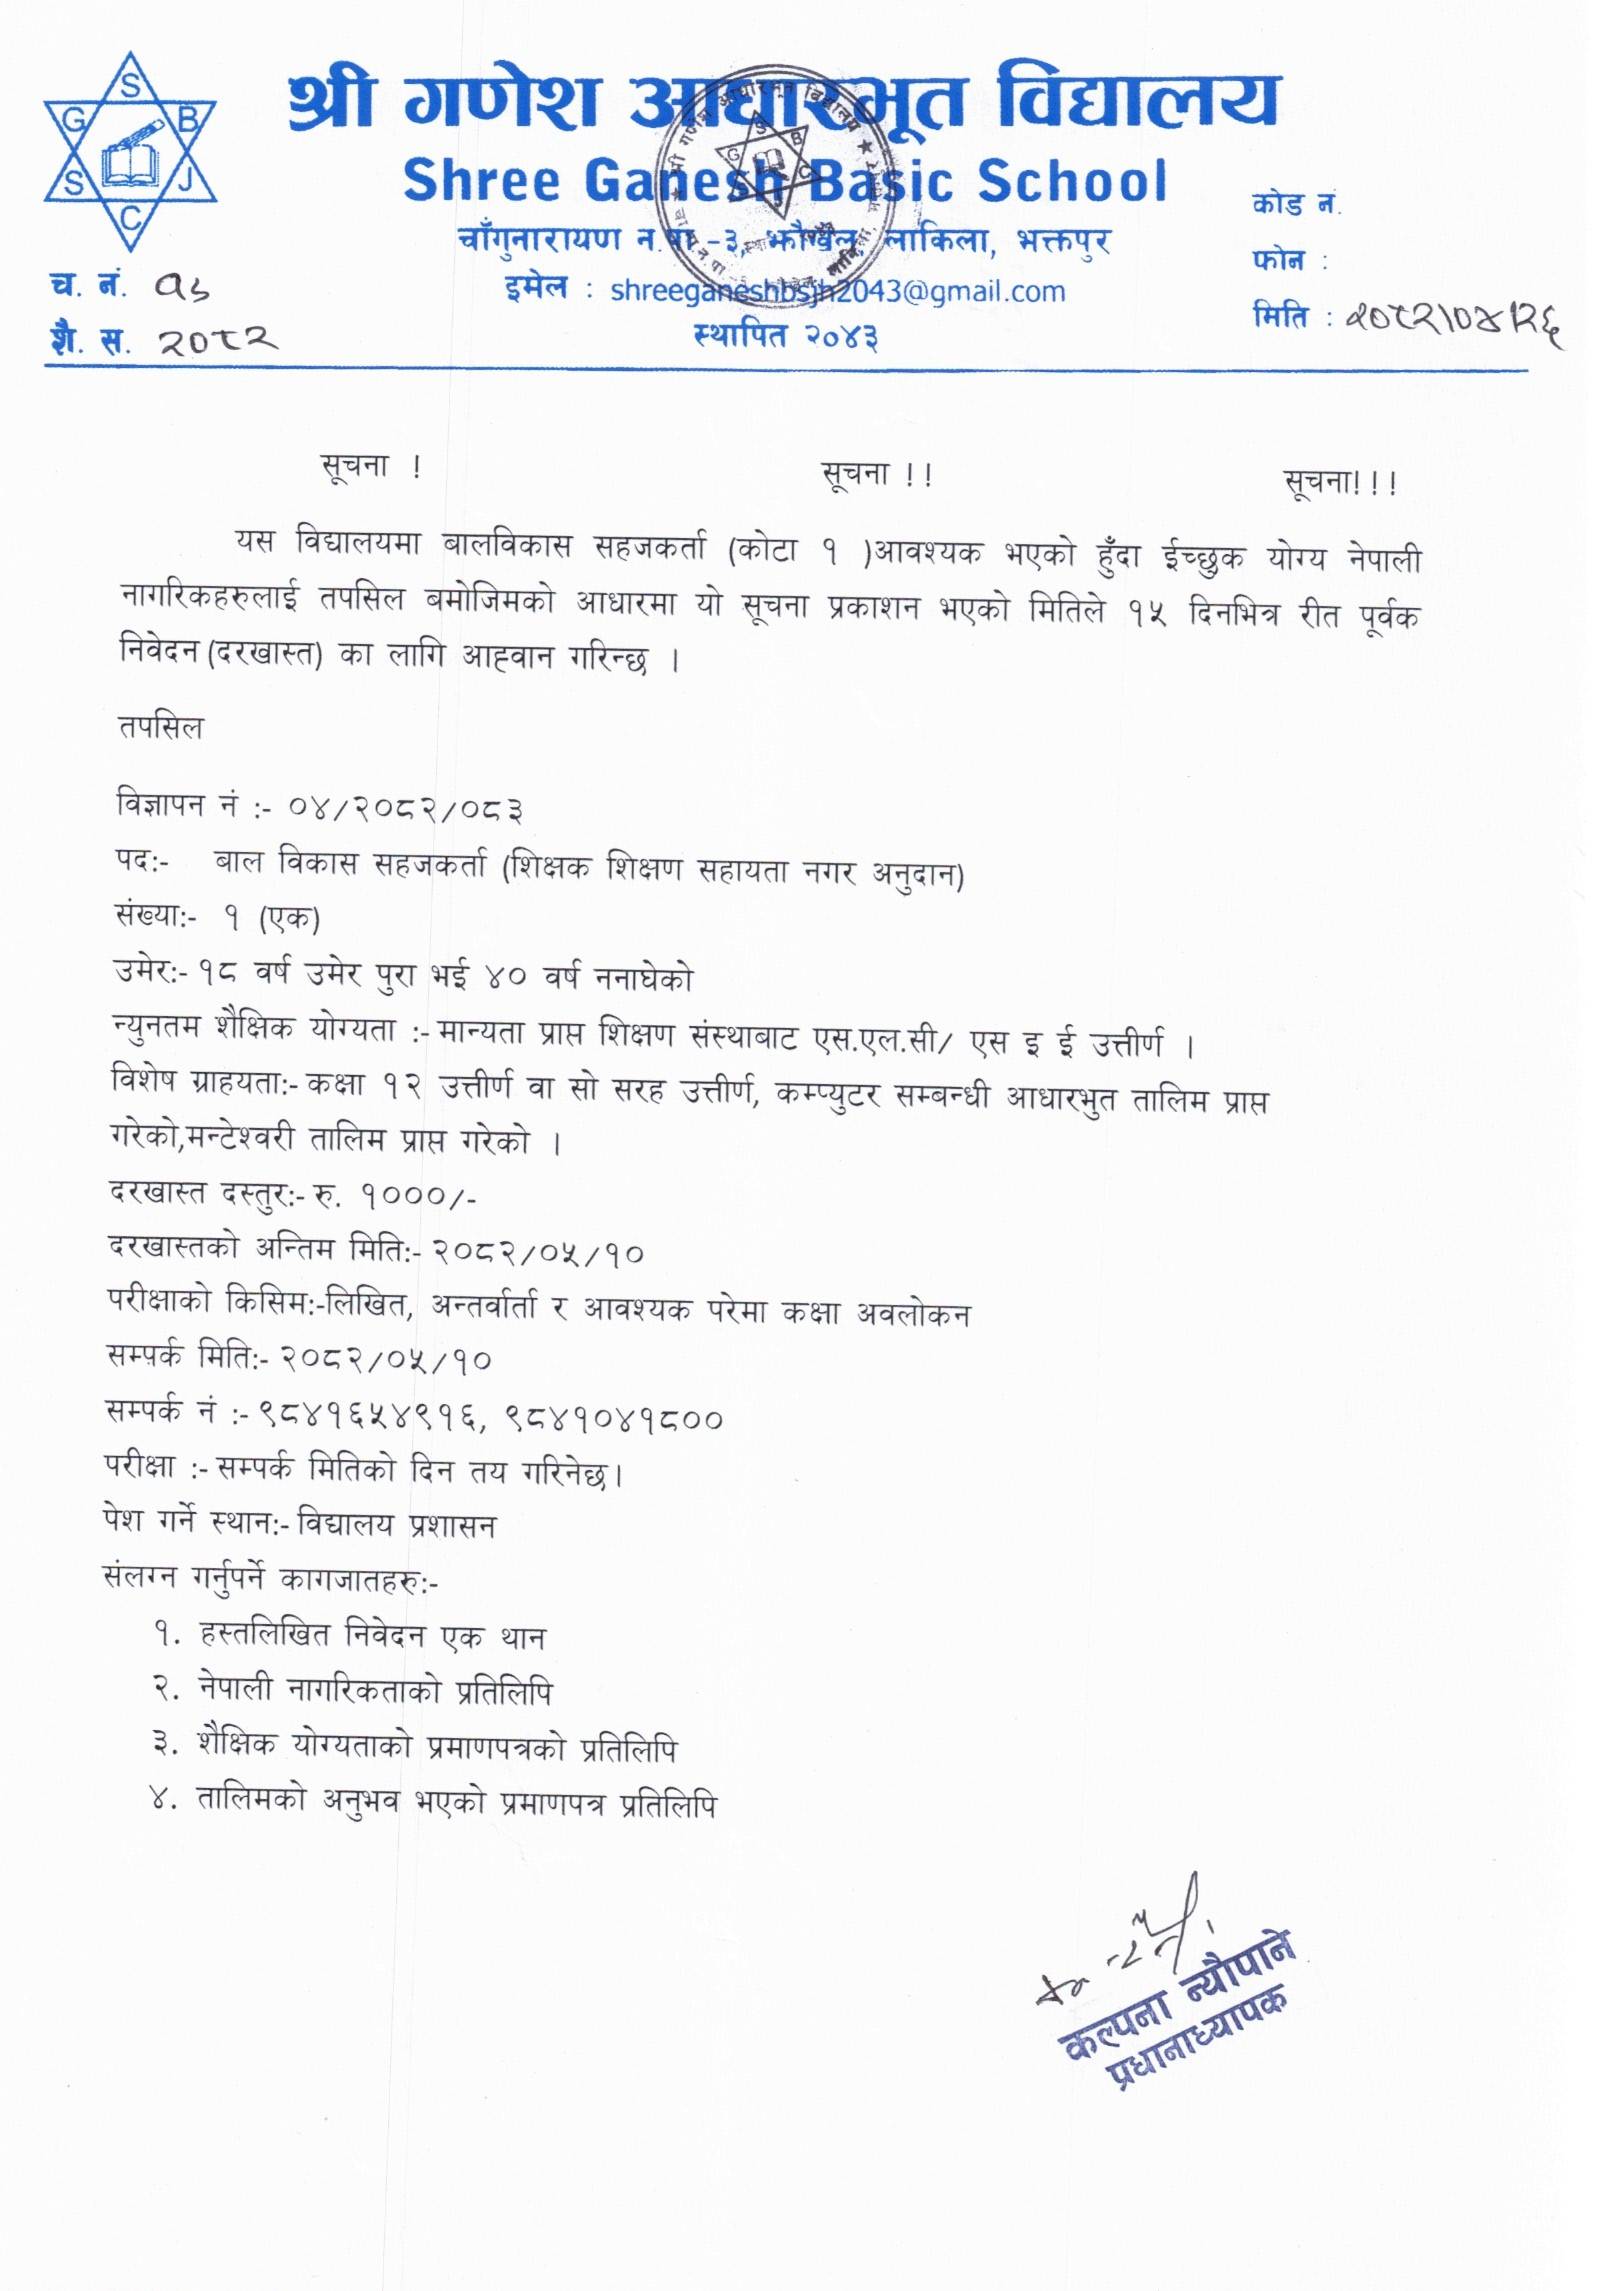 श्री गणेश आधारभूत विद्यालय
Shree Ganesh Basic School
चाँगुनारायण न.पा.-३, झौखेल, लाकिला, भक्तपुर
इमेल : shreeganeshbsjh2043@gmail.com
स्थापित २०४३
S
G B
S J
C
च. नं. १७
शै. स. २०८२
कोड नं.
फोन :
मिति : २०८२।०४।२६
सूचना ! सूचना !! सूचना!!!
यस विद्यालयमा बालविकास सहजकर्ता (कोटा १ )आवश्यक भएको हुँदा ईच्छुक योग्य नेपाली
नागरिकहरुलाई तपसिल बमोजिमको आधारमा यो सूचना प्रकाशन भएको मितिले १५ दिनभित्र रीत पूर्वक
निवेदन(दरखास्त) का लागि आह्वान गरिन्छ ।
तपसिल
विज्ञापन नं :- ०४/२०८२/०८३
पद:- बाल विकास सहजकर्ता (शिक्षक शिक्षण सहायता नगर अनुदान)
संख्या:- १ (एक)
उमेर:- १८ वर्ष उमेर पुरा भई ४० वर्ष ननाघेको
न्युनतम शैक्षिक योग्यता :- मान्यता प्राप्त शिक्षण संस्थाबाट एस.एल.सी/ एस इ ई उत्तीर्ण ।
विशेष ग्राहयता:- कक्षा १२ उत्तीर्ण वा सो सरह उत्तीर्ण, कम्प्युटर सम्बन्धी आधारभुत तालिम प्राप्त
गरेको,मन्टेश्वरी तालिम प्राप्त गरेको ।
दरखास्त दस्तुर:- रु. १०००/-
दरखास्तको अन्तिम मिति:- २०८२/०५/१०
परीक्षाको किसिम:-लिखित, अन्तर्वार्ता र आवश्यक परेमा कक्षा अवलोकन
सम्पर्क मिति:- २०८२/०५/१०
सम्पर्क नं :- ९८४१६५४९१६, ९८४१०४१८००
परीक्षा :- सम्पर्क मितिको दिन तय गरिनेछ।
पेश गर्ने स्थान:- विद्यालय प्रशासन
संलग्न गर्नुपर्ने कागजातहरु:-
१. हस्तलिखित निवेदन एक थान
२. नेपाली नागरिकताको प्रतिलिपि
३. शैक्षिक योग्यताको प्रमाणपत्रको प्रतिलिपि
४. तालिमको अनुभव भएको प्रमाणपत्र प्रतिलिपि
कल्पना न्यौपाने
प्रधानाध्यापक